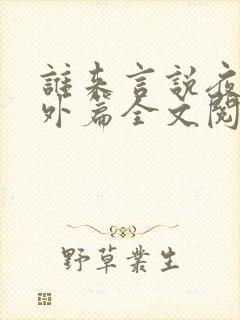 誰来言說夜
外篇全文閱
野草叢生